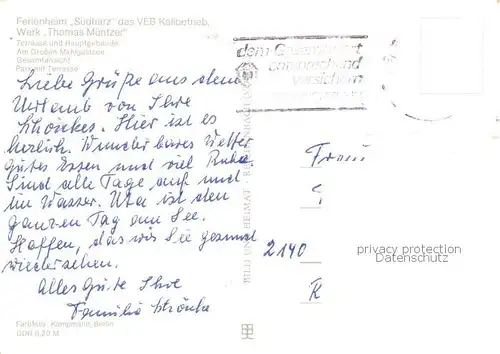 Ferienheim „Südharz" des VEB Kalibetrieb,
Werk „Thomas Müntzer"
Terrasse und Hauptgebäude
Am Großen Mehlgalssee
Gesamtansicht
Park mit Terrasse
dem Gesamtwert
entsprechend
versichern
Liebe Grüße aus dem
Urlaub von Ihre
Schönkes. Hier ist es
herlich. Wunderbares Wetter
gutes Essen und viel Ruhe.
Sind alle Tage auf und
im Wasser. Uta ist den
ganzen Tag am See.
Hoffen, das wir Sie gesund
wiedersehen.
Alles Gute Ihre
Familie Schönke
Frau
2140
K
privacy protection
Datenschutz
BILD UND HEIMAT
Farbfoto: Kampmann, Berlin
DDR 0,20 M